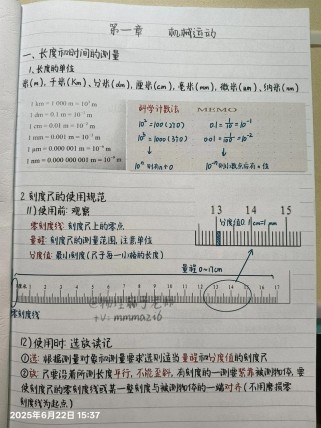 第一章 机械运动
一、长度和时间的测量
1. 长度的单位
米(m)、千米(Km)、分米(dm)、厘米(cm)、毫米(mm)、微米(um)、纳米(nm)
1 km = 1 000 m = 10³ m
1 dm = 0.1 m = 10⁻¹ m
1 cm = 0.01 m = 10⁻² m
1 mm = 0.001 m = 10⁻³ m
1 μm = 0.000 001 m = 10⁻⁶ m
1 nm = 0.000 000 001 m = 10⁻⁹ m
科学计数法: MEMO
10²=100(2个0)
10³=1000(3个0)
10ⁿ则有n个0
2. 刻度尺的使用规范
(1)使用前: 观察
零刻度线: 刻度尺上的零点
量程: 刻度尺的测量范围, 注意单位
分度值: 最小刻度(尺子每一小格的长度)
13 14 15
分度值0.1cm=1mm
量程0~17cm
0 1 2 3 4 5 6 7 8 9 10 11 12 13 14 15 16 17
零刻度线
(2)使用时: 选放读记
①选: 根据测量对象和测量要求选则适当量程和分度值的刻度尺
②放: 尺要沿着所测长度平行, 不能歪斜, 有刻度的一测要紧靠被测物体, 要
使刻度尺的零刻度线或某一整刻度与被测物体的一端对齐(不用磨损零
刻度线为起点)
2025年6月22日 15:37